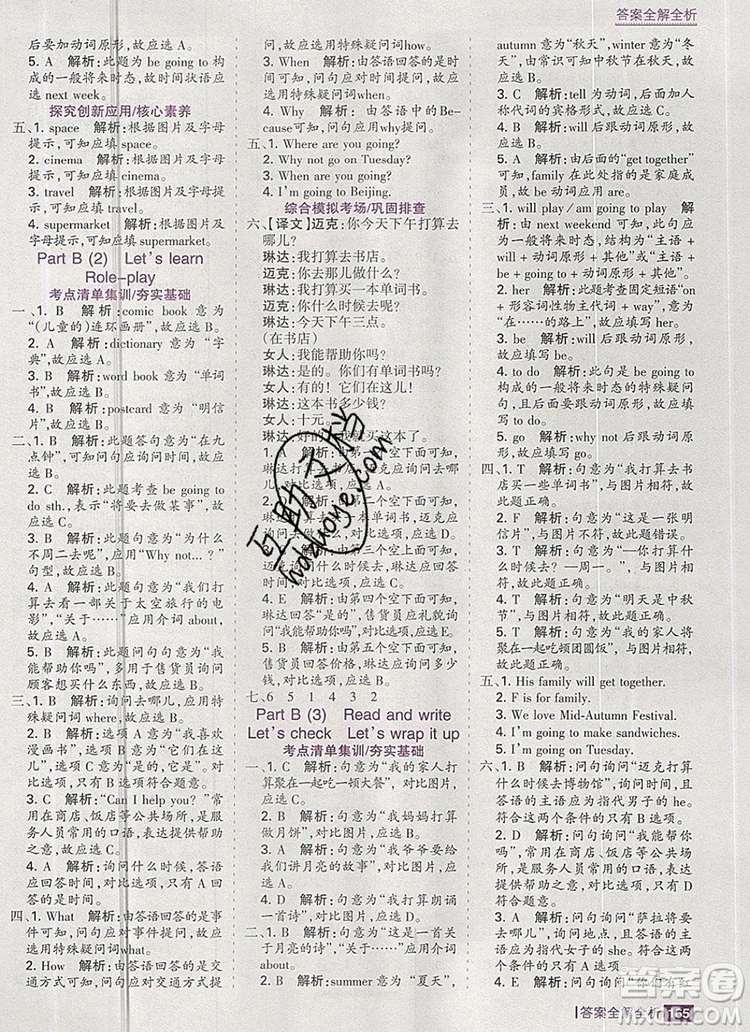 答案全解全析
后要加动词原形，故应选 A。
5. A　解析:此题为 be going to 构
成的一般将来时态，故时间状语应
选 next week。
探究创新应用/核心素养
五、1. space　解析:根据图片及字母
提示，可知应填 space。
2. cinema　解析:根据图片及字母
提示，可知应填 cinema。
3. travel　解析:根据图片及字母
提示，可知应填 travel。
4. supermarket　解析:根据图片及
字母提示，可知应填 supermarket。
Part B (2)　Let's learn
Role-play
考点清单集训/夯实基础
一、1. B　解析:comic book 意为
“(儿童的)连环画册”，故应选 B。
2. A　解析:dictionary 意为“字
典”，故应选 A。
3. B　解析:word book 意为“单词
书”，故应选 B。
4. B　解析:postcard 意为“明信
片”，故应选 B。
二、1. C　解析:此题答句意为“在九
点钟”，可知应询问时间，故应选 C。
2. A　解析:此题考查 be going to
do sth.，表示“要做某事”，故应
选 A。
3. B　解析:此题意为“为什么
不周二去呢”，应用“Why not...？”
句型，故应选 B。
4. A　解析:此题句意为“我们打
算去看一部关于太空旅行的电
影”，“关于……”应用介词 about，
故应选 A。
5. A　解析:此题问句意为“我能
帮助你吗”，多用于售货员询问
顾客想要买什么，故应选 A。
三、1. D　解析:询问去哪儿，应用特
殊疑问词 where，故应选 D。
2. E　解析:答句意为“我喜欢
漫画书”，问句应为“它们呢”，
对比选项，故应选 E。
3. C　解析:“Can I help you？”
常用在商店、饭店等地方，是服
务人员常用的语言，表达提供帮助
之意，故应选 C。
4. A　解析:询问什么时候，答语
应回答时间，对比选项，可选 A。
5. B　解析:根据问句可知，答语应
回答的是时间，对比选项，故选 B。
四、1. What　解析:由答语回答的是事
件可知，问句应对事件提问，故应
用特殊疑问词what。
2. How　解析:由答语回答的是交
通方式可知，应询问的是交通方
式，故应用特殊疑问词how。
3. When　解析:由答语回答的时间
可知，问句应对时间提问，故应用
特殊疑问词 when。
4. Why　解析:由答语中的 Be-
cause可知，问句应用why提问。
五、1. Where are you going?
2. Why not go on Tuesday?
3. When are you going?
4. I'm going to Beijing.
综合模拟考场/巩固排查
六、【译文】迈克:你今天下午打算去
哪儿？
琳达:我打算去书店。
迈克:你打算做什么？
琳达:我打算买一本单词书。
迈克:你什么时候去呢？
琳达:今天下午三点。
(在书店)
女人:我能帮助你吗？
琳达:是的！你有单词书吗？
女人:有的！它们在这儿！
琳达:这本书多少钱？
女人:十元。
琳达:好的！我就买这本了。
琳达打算去书店，问句应询问去哪
儿，对比选项，故应选 D。
2. A　解析:由第二个空下面可知，
琳达打算买一本单词书，迈克应
问她打算做什么，对比选项，故应
选 A。
3. B　解析:由第三个空上面可知，
迈克询问什么时候，琳达应回答
时间，对比选项，故应选 B。
4. E　解析:由第四个空下面可知，
琳达回答“是的”，售货员应礼貌询
问“我能帮助你吗”，对比选项，故
应选 E。
5. C　解析:由第五个空下面可知，
售货员回答价格，琳达应询问多少
钱，对比选项，故应选 C。
七、6　5　1　4　3　2
Part B (3)　Read and write
Let's check　Let's wrap it up
考点清单集训/夯实基础
一、1. C　解析:句意为“我的家人打
算聚在一起吃一顿大餐”，对比图
片，应选 C。
2. B　解析:句意为“我妈妈打算
做月饼”，对比图片，应选 B。
3. A　解析:句意为“我爷爷要给
我们讲月亮的故事”，对比图片，应
选 A。
4. D　解析:句意为“我打算朗诵
一首诗”，对比图片，应选 D。
二、1. B　解析:summer 意为“夏天”，
autumn 意为“秋天”，winter 意为“冬
天”，由常识可知中秋节在秋天，故
应选 B。
2. C　解析:tell 为动词，后面加人
称代词的宾格形式，故应选 C。
3. B　解析:will 后跟动词原形，故
应选 B。
4. B　解析:will 后跟动词原形，故
应选 B。
5. A　解析:由后面的“get together”
可知，family 在此意为“家人”，为
复数，故应选 A。
三、1. will play / am going to play　解
析:由 next weekend 可知，应为一
般将来时态，结构为“主语 +
will + 动词原形 + 其他”或“主语 +
be going to + 动词原形 + 其他”。
2. way　解析:此题考查固定短语“on
+ 形容词性物主代词 + way”，意为
“在……的路上”，故应填写 way。
3. be　解析:will 后跟动词原形，故
应填写 be。
4. to do　解析:此句是 be going to
构成的一般将来时态的特殊疑问
句，结构为“特殊疑问词 + be +
主语 + going to + 动词原形”，故应
填写 to do。
5. go　解析:why not 后跟动词原
形，故应填写 go。
四、1. T　解析:句意为“我打算去书
店买一些单词书”，与图片相符，故
此题正确。
2. F　解析:句意为“这是一张明信
片”，与图片不符，故此题错误。
3. T　解析:句意为“—你打算什
么时候去？ —周一”，与图片相
符，故此题正确。
4. T　解析:句意为“明天是中秋
节”，与图片相符，故此题正确。
5. T　解析:句意为“我的家人将
聚在一起吃团圆饭”，与图片相符，
故此题正确。
五、1. His family will get together.
2. F is for family.
3. We love Mid-Autumn Festival.
4. I'm going to make sandwiches.
5. I'm going on Tuesday.
六、1. B　解析:问句句意为“迈克打算
什么时候去博物馆”，询问时间，且
答语的主语应为指代男子的 he。
符合这两个条件的只有 B 选项，故
应选 B。
2. D　解析:问句询问“我能帮助
你吗”，常用在商店、饭店等地方，
是服务人员常用的语言。符合
条件的只有 D 选项，故应选 D。
3. A　解析:问句询问“萨拉将要
去哪儿”，询问地点，且答语的主语
应为指代女子的 she。符合这两
个条件的只有 A 选项，故应选 A。
答案全解全析 165
互助文档
hdzuoye.com
答案圈